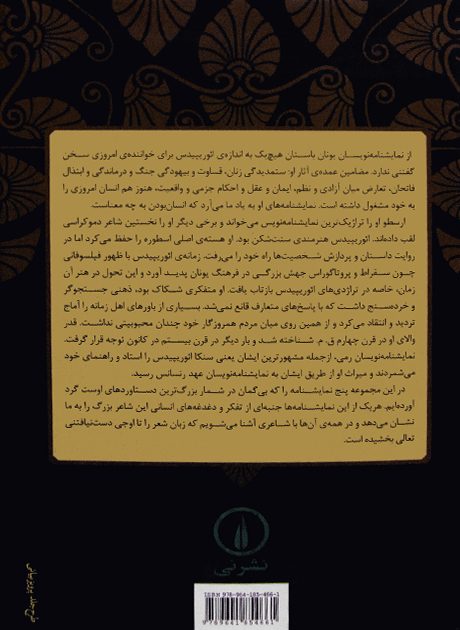 از نمایشنامه‌نویسان یونان باستان هیچ‌یک به اندازه‌ی ائوریپیدس برای خواننده‌ی امروزی سخن
گفتنی ندارد. مضامین عمده‌ی آثار او: ستمدیدگی زنان، قساوت و بیهودگی جنگ و درماندگی و ابتذال
فاتحان، تعارض میان آزادی و نظم، ایمان و عقل و احکام جزمی و واقعیت، هنوز هم انسان امروزی را
به خود مشغول داشته است. نمایشنامه‌های او به یاد ما می‌آرد که انسان‌بودن به چه معناست.
ارسطو او را تراژیک‌ترین نمایشنامه‌نویس می‌خواند و برخی دیگر او را نخستین شاعر دموکراسی
لقب داده‌اند. ائوریپیدس هنرمندی سنت‌شکن بود. او هسته‌ی اصلی اسطوره را حفظ می‌کرد اما در
روایت داستان و پردازش شخصیت‌ها راه خود را می‌رفت. زمانه‌ی ائوریپیدس با ظهور فیلسوفانی
چون سقراط و پروتاگوراس جهش بزرگی در فرهنگ یونان پدید آورد و این تحول در هنر آن
زمان، خاصه در تراژدی‌های ائوریپیدس بازتاب یافت. او متفکری شکاک بود، ذهنی جستجوگر
و خرده‌سنج داشت که با پاسخ‌های متعارف قانع نمی‌شد. بسیاری از باورهای اهل زمانه را آماج
تردید و انتقاد می‌کرد و از همین روی میان مردم همروزگار خود چندان محبوبیتی نداشت. قدر
والای او در قرن چهارم ق. م. شناخته شد و بار دیگر در قرن بیستم در کانون توجه قرار گرفت.
نمایشنامه‌نویسان رمی، ازجمله مشهورترین ایشان یعنی سنکا ائوریپیدس را استاد و راهنمای خود
می‌شمردند و میراث او از طریق ایشان به نمایشنامه‌نویسان عهد رنسانس رسید.
در این مجموعه پنج نمایشنامه را که بی‌گمان در شمار بزرگ‌ترین دستاوردهای اوست گرد
آورده‌ایم. هریک از این نمایشنامه‌ها جنبه‌ای از تفکر و دغدغه‌های انسانی این شاعر بزرگ را به ما
نشان می‌دهد و در همه‌ی آن‌ها با شاعری آشنا می‌شویم که زبان شعر را تا اوجی دست‌نیافتنی
تعالی بخشیده است.
نشر نی
طرح جلد: پرویز بیانی
ISBN 978-964-185-466-1
9789641854661